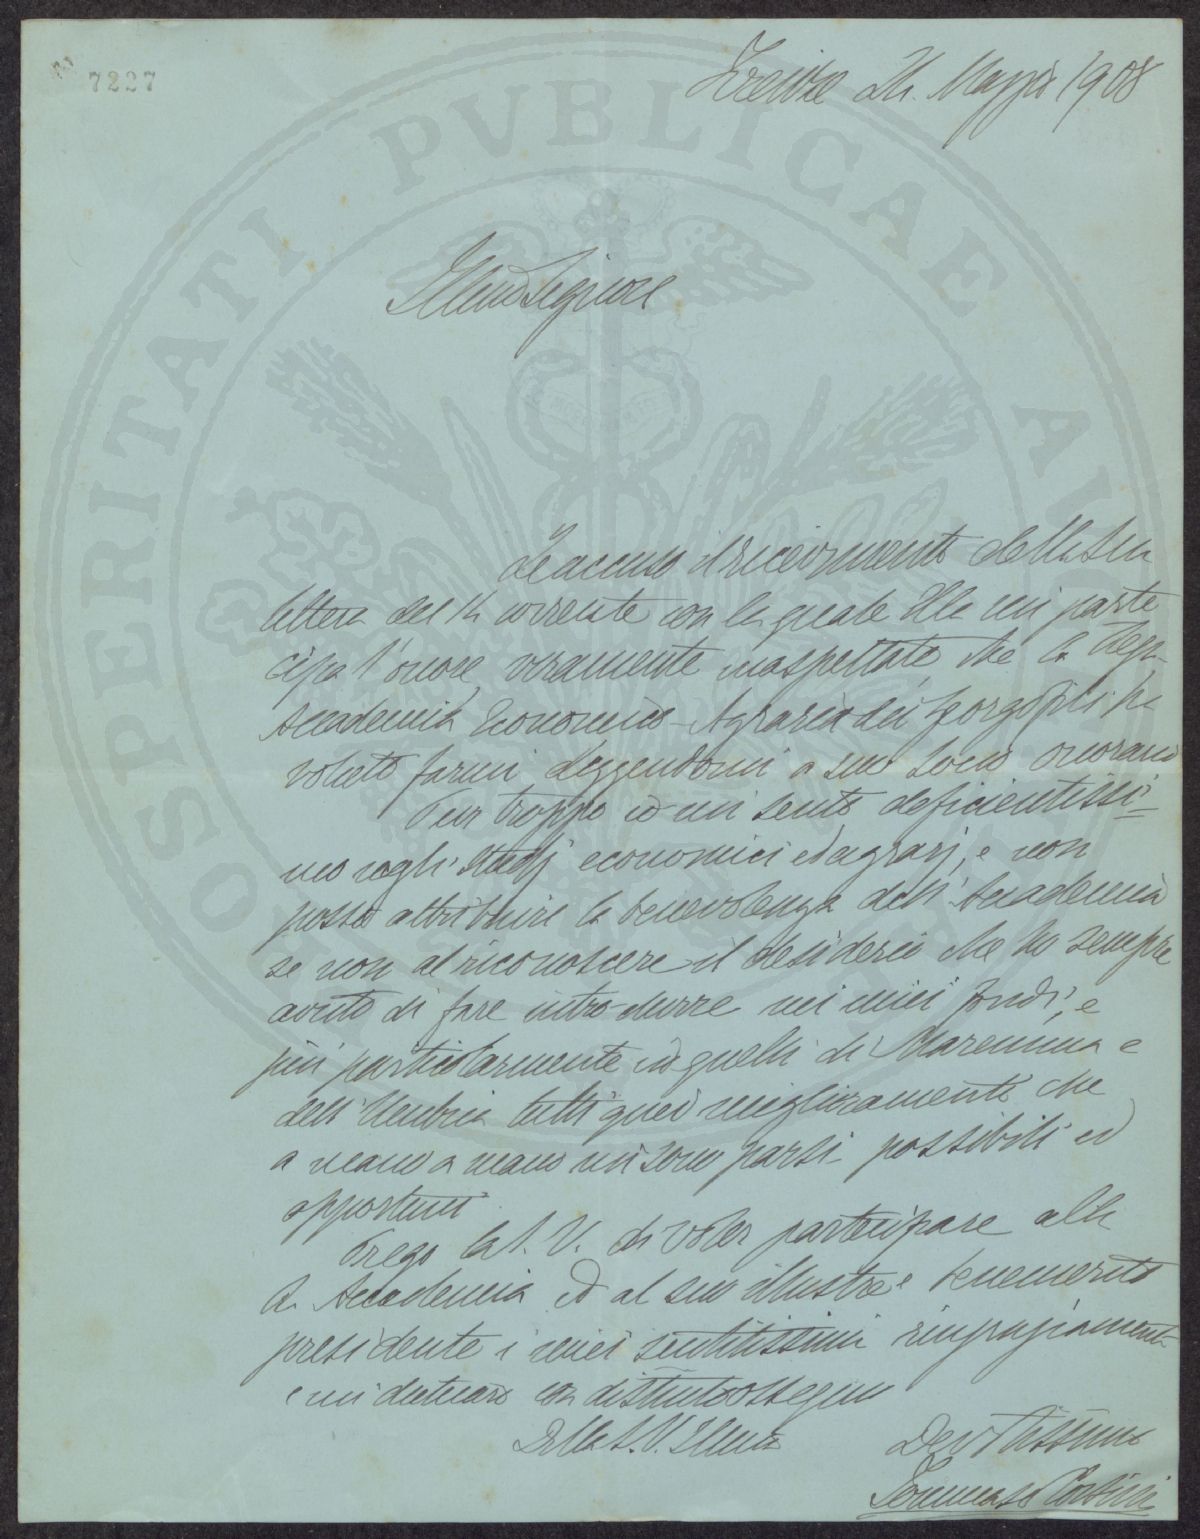 7227
Firenze 24. Maggio 1908
Illmo Signore
Le accuso il ricevimento della Sua
lettera del 14 corrente con la quale Ella mi parte
cipa l'onore, veramente inaspettato, che la Regia
Accademia Economico-Agraria dei Georgofili ha
voluto farmi eleggendomi a suo socio onorario
Pur troppo io mi sento deficientissi=
mo negli studj economici ed agrarj, e non
posso attribuire la benevolenza dell'Accademia
se non al riconoscere il desiderio che ho sempre
avuto di fare introdurre nei miei fondi, e
più particolarmente in quelli di Maremma e
dell'Umbria tutti quei miglioramenti che
a mano a mano mi sono parsi possibili ed
opportuni
Prego la S. V. di voler partecipare alla
R. Accademia ed al suo illustre e benemerito
presidente i miei sentitissimi ringraziamenti
e mi dichiaro con distinto ossequio
Della S. V. Illma
Devotissimo
Tommaso Corsini
PROSPERITATI PVBLICAE AVGENDAE